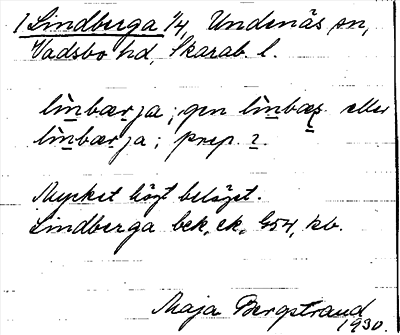 1 Lindberga 1/4, Undenäs sn,
Vadsbo hd, Skarab. l.
linbærja; gen linbæs eller
linbærja; prep. i.
Mycket högt beläget.
Lindberga bek, ek, G54, kb.
Maja Bergstrand
1930.